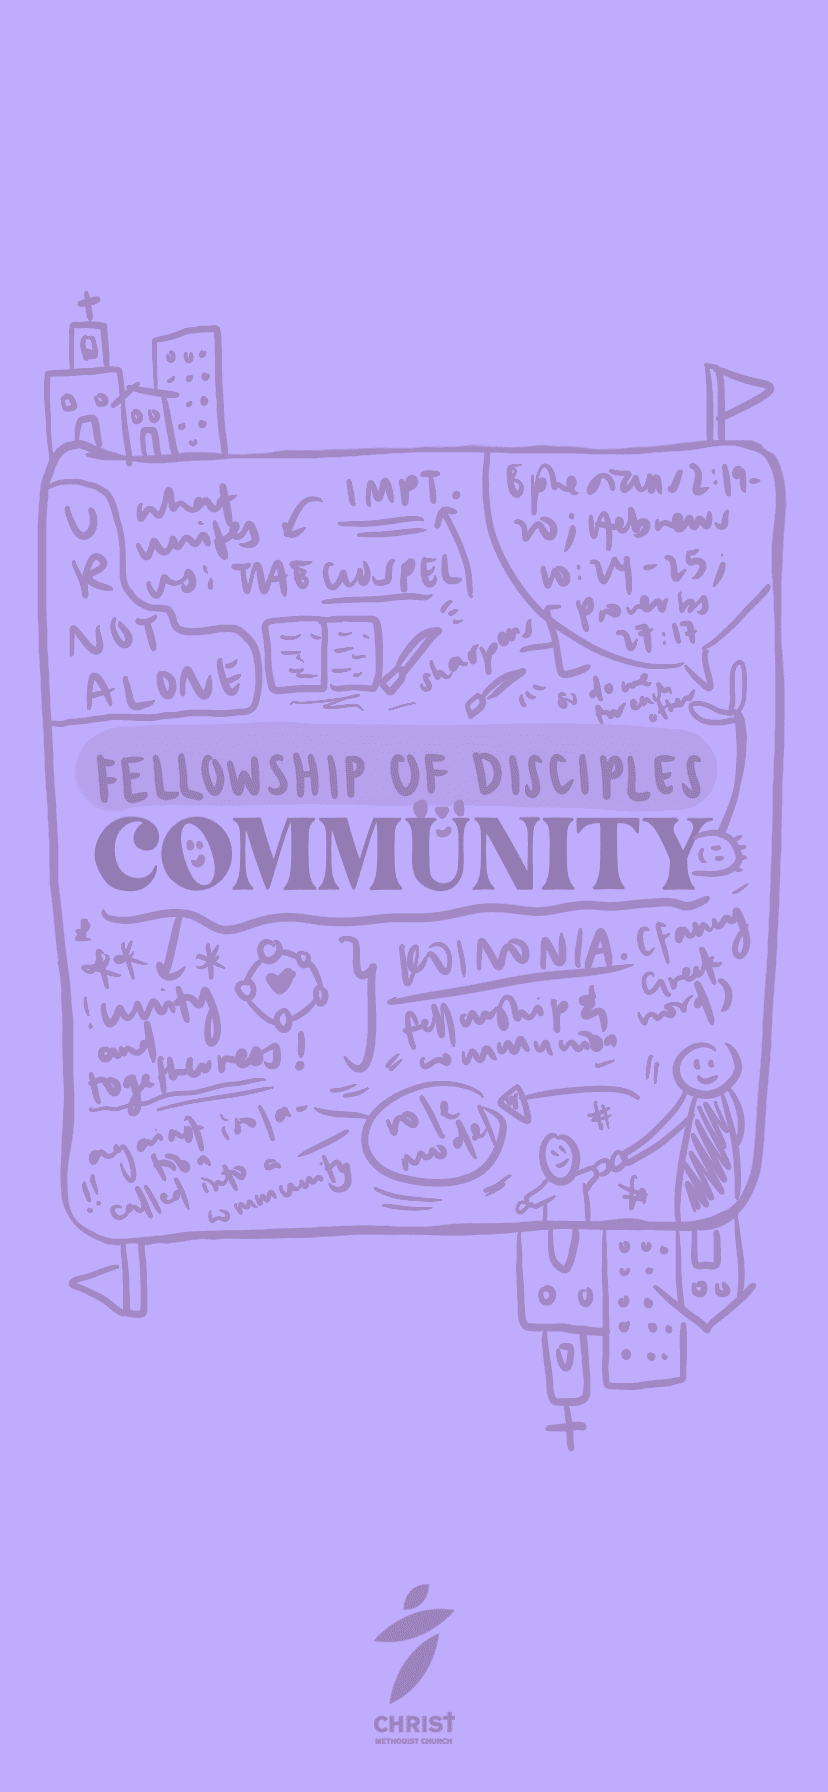 U
R
NOT
ALONE
what
unifies
us: THE GOSPEL
IMPT.
Ephesians 2:19-
20; Hebrews
10:24-25;
Proverbs
27:17
sharpens
so do we
for each
other
FELLOWSHIP OF DISCIPLES
COMMUNITY
! unity
and
togetherness!
KOINONIA. (fancy
Greek
word)
fellowship &
communion
against isola-
tion
!! called into a
community
role
model
CHRIST
METHODIST CHURCH